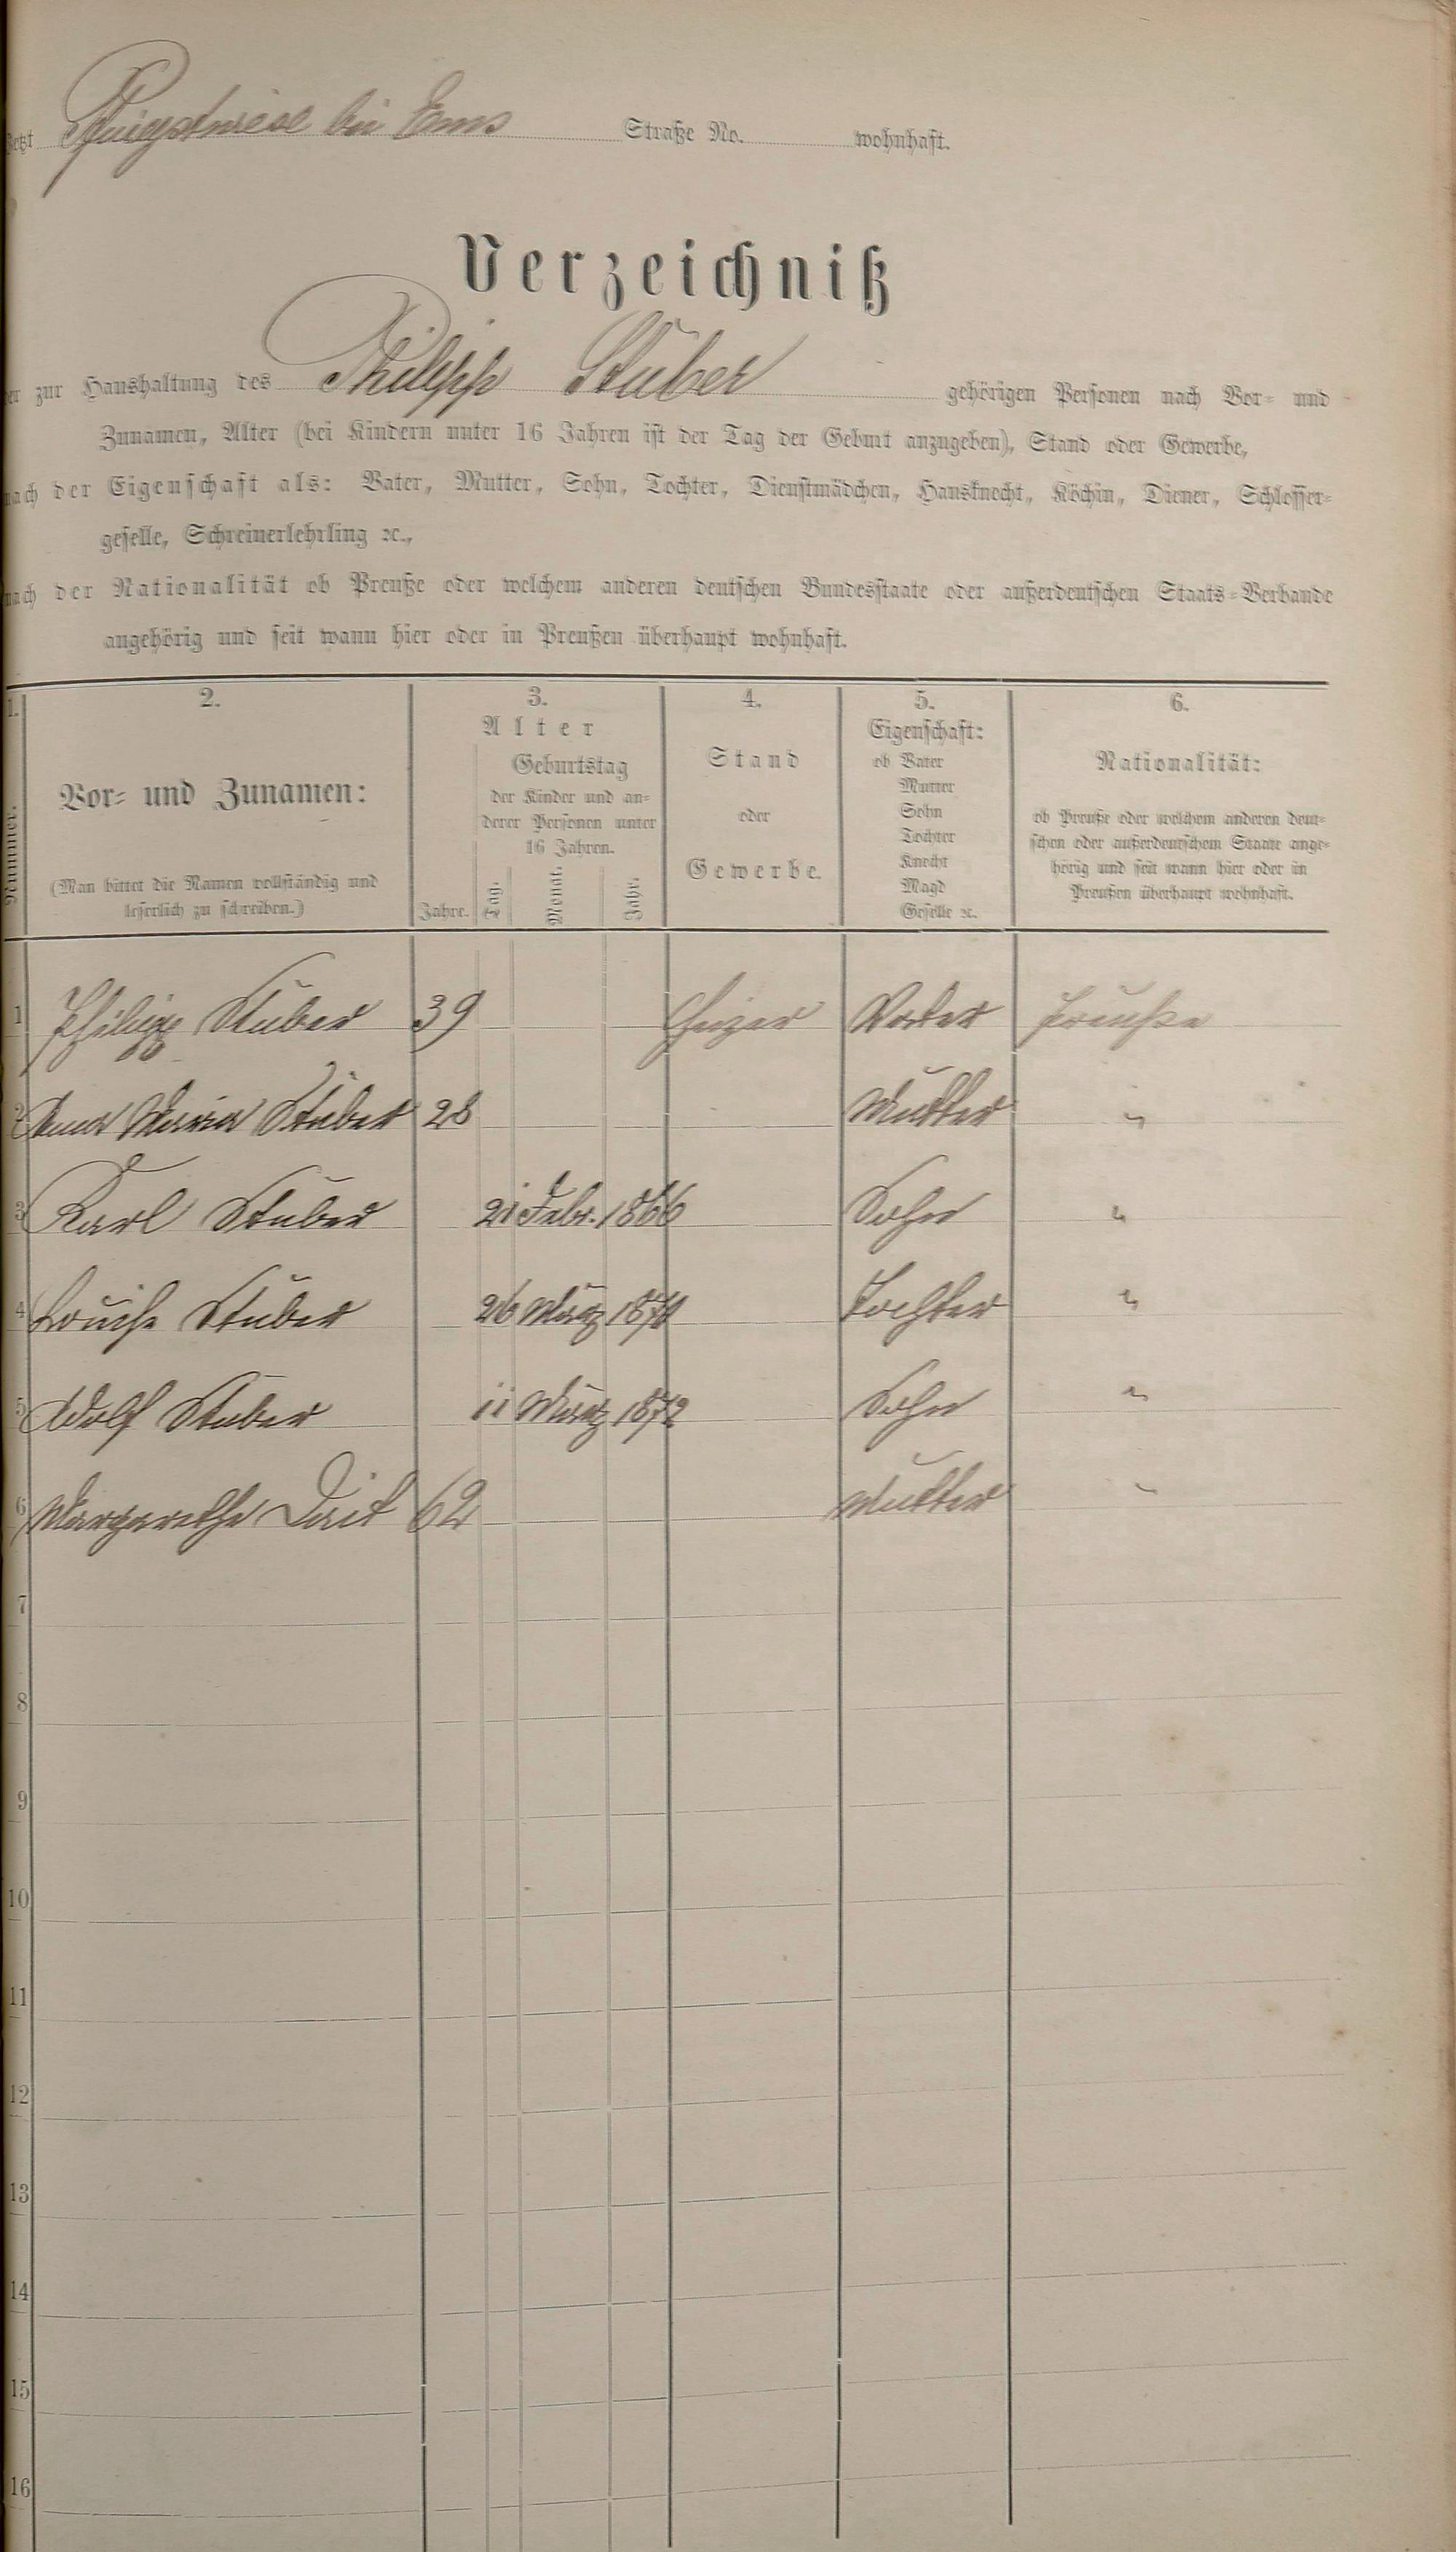 jetzt Pfingstwiese bei Ems Straße No. wohnhaft.
Verzeichniß
der zur Haushaltung des Philipp Stüber gehörigen Personen nach Vor- und
Zunamen, Alter (bei Kindern unter 16 Jahren ist der Tag der Geburt anzugeben), Stand oder Gewerbe,
nach der Eigenschaft als: Vater, Mutter, Sohn, Tochter, Dienstmädchen, Hausknecht, Köchin, Diener, Schlosser-
geselle, Schreinerlehrling ꝛc.,
nach der Nationalität ob Preuße oder welchem anderen deutschen Bundesstaate oder außerdeutschen Staats-Verbande
angehörig und seit wann hier oder in Preußen überhaupt wohnhaft.
1. 2. 3. 4. 5. 6.
Nummer.
Vor- und Zunamen:
(Man bittet die Namen vollständig und
leserlich zu schreiben.)
Alter
Geburtstag
der Kinder und an-
derer Personen unter
16 Jahren.
Jahre. Tag. Monat. Jahr.
Stand
oder
Gewerbe.
Eigenschaft:
ob Vater
Mutter
Sohn
Tochter
Knecht
Magd
Geselle ꝛc.
Nationalität:
ob Preuße oder welchem anderen deut-
schen oder außerdeutschem Staate ange-
hörig und seit wann hier oder in
Preußen überhaupt wohnhaft.
1 Philipp Stüber 39 Heizer Vater Preuße
2 Anna Maria Stüber 28 Mutter "
3 Karl Stüber 21 Febr. 1866 Sohn "
4 Louise Stüber 26 März 1870 Tochter "
5 Adolf Stüber 11 März 1872 Sohn "
6 Margarethe 62 Mutter "
7
8
9
10
11
12
13
14
15
16